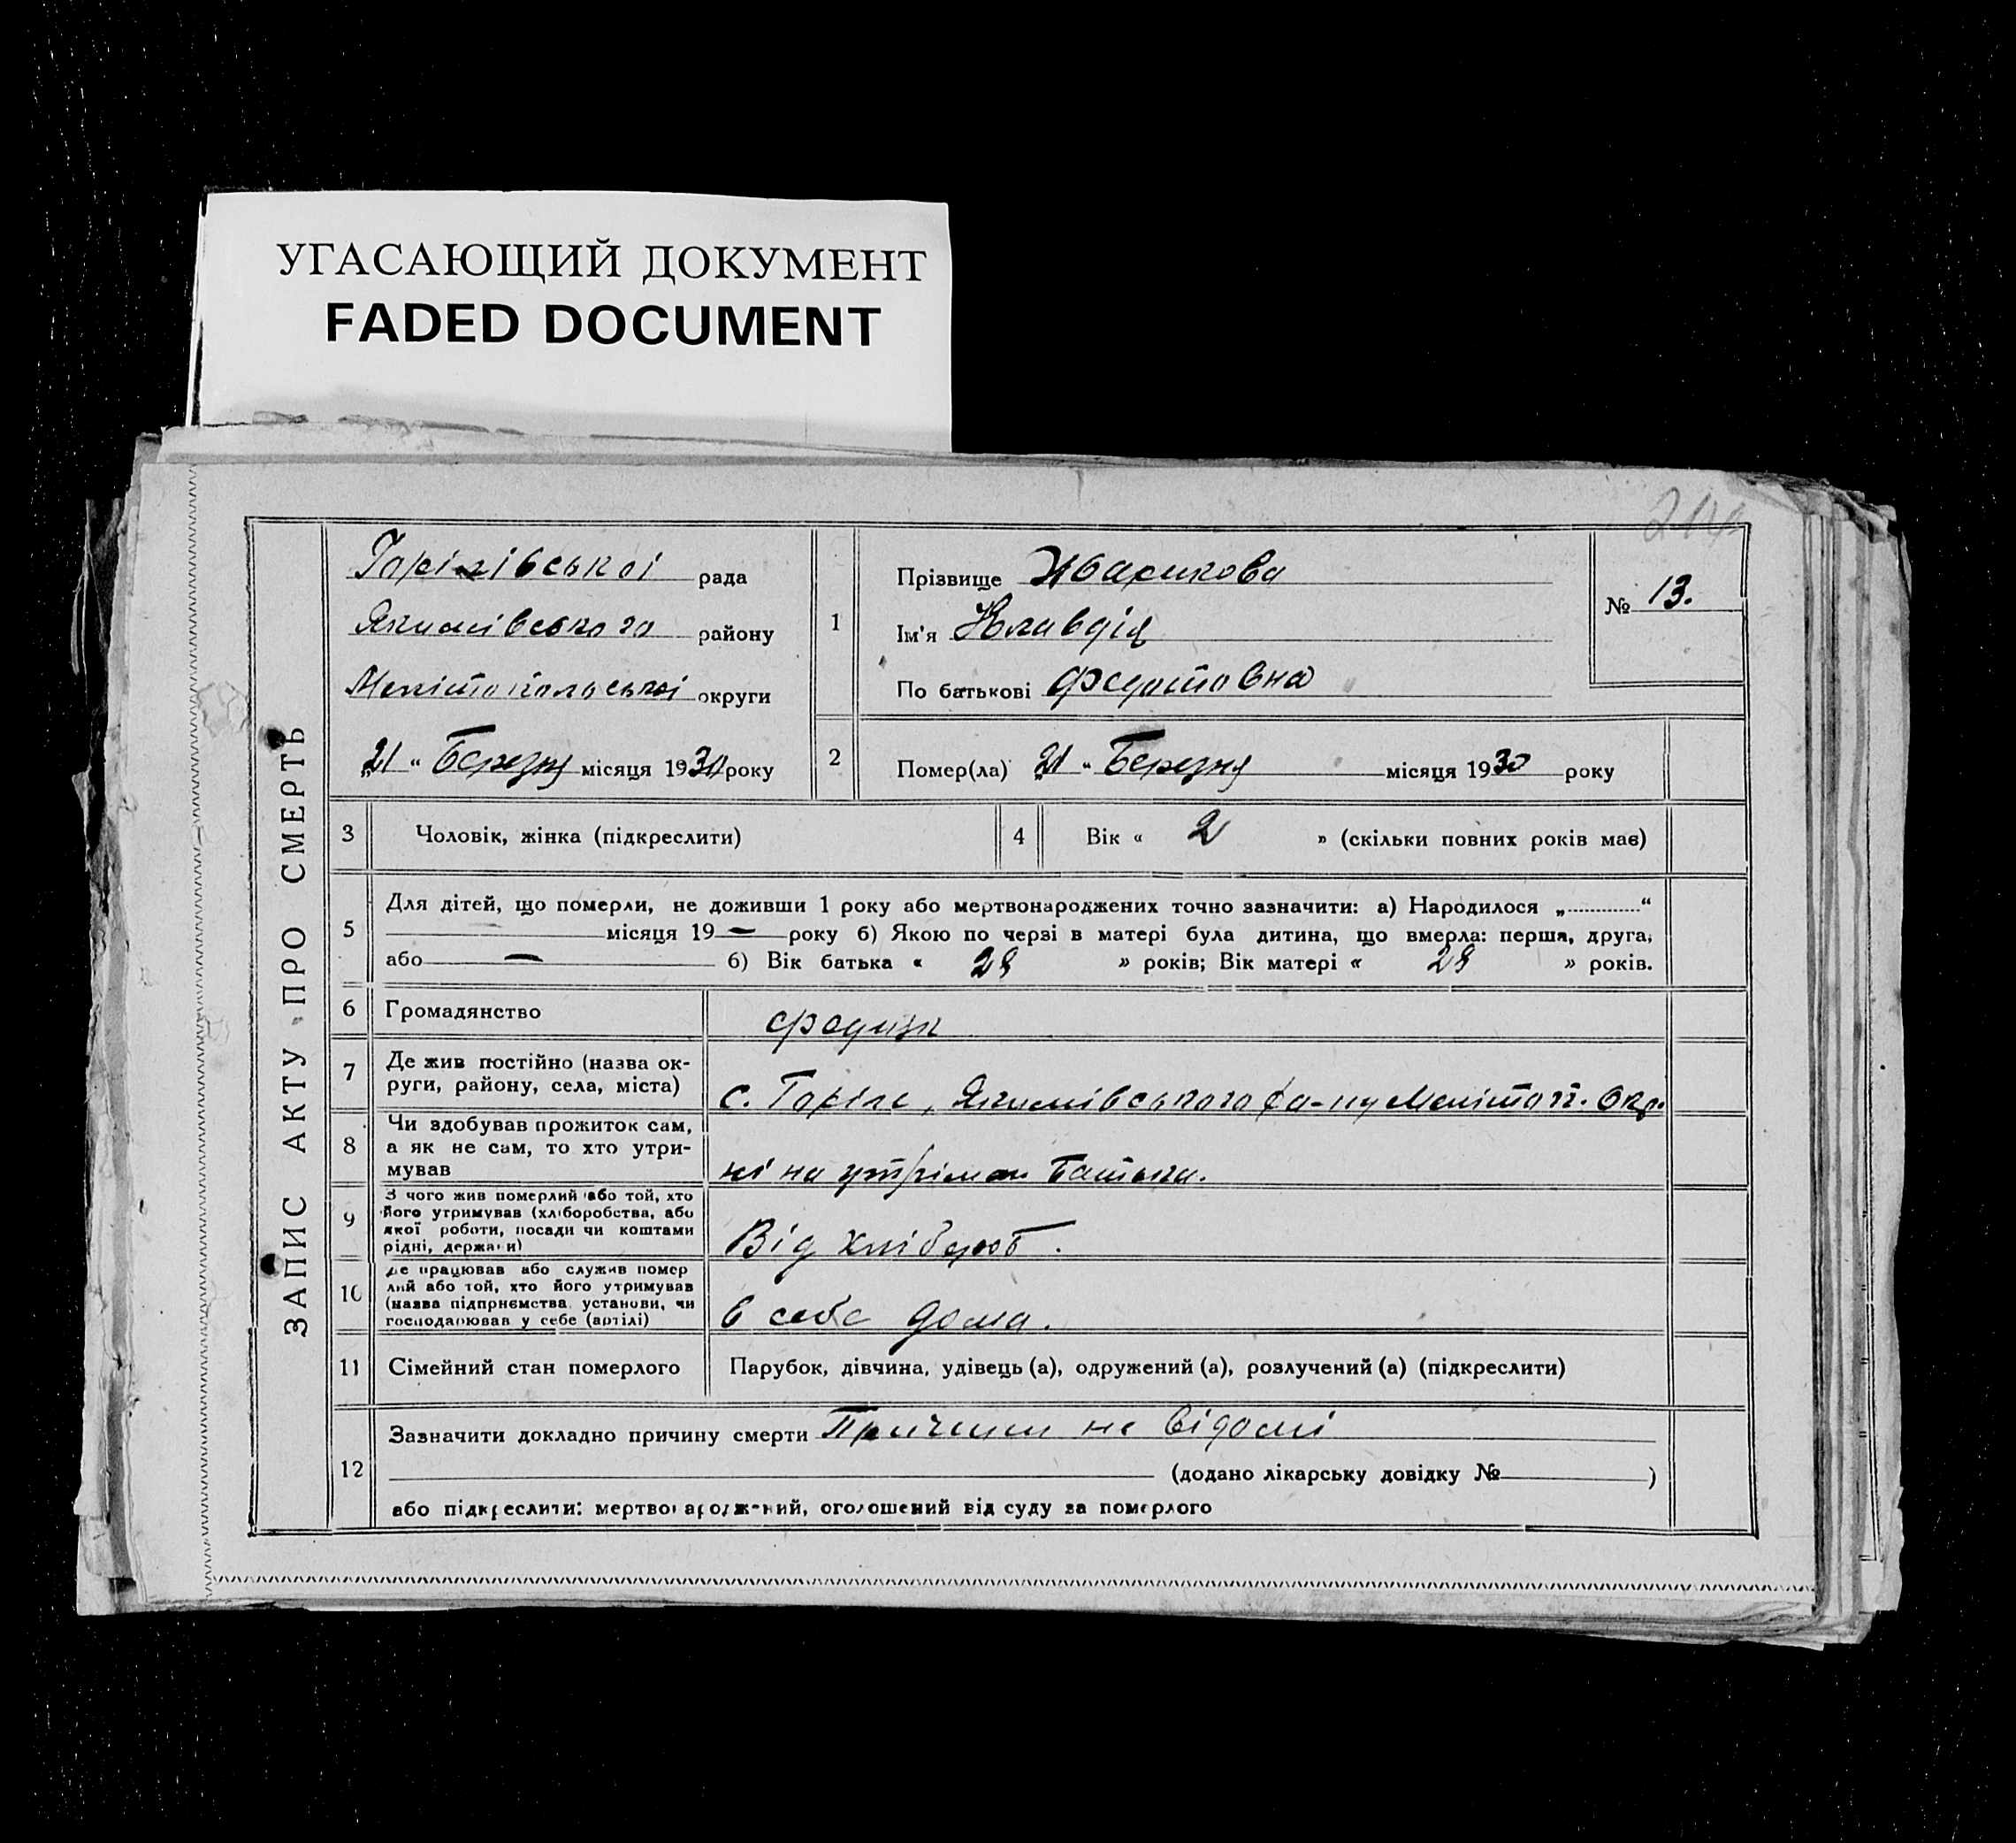 УГАСАЮЩИЙ ДОКУМЕНТ
FADED DOCUMENT
ЗАПИС АКТУ ПРО СМЕРТЬ
Горілівської рада
Якимівського району
Мелітопольської округи
„21“ Березня місяця 1930 року
1
Прізвище
Ім'я Клавдія
По батькові Федотовна
№ 13.
2
Помер(ла) 21 „ Березня місяця 1930 року
3 Чоловік, жінка (підкреслити)
4 Вік « 2 » (скільки повних років має)
5
Для дітей, що померли, не доживши 1 року або мертвонароджених точно зазначити: а) Народилося „............“
місяця 19 — року б) Якою по черзі в матері була дитина, що вмерла: перша, друга,
або — б) Вік батька « 28 » років; Вік матері « 28 » років.
6 Громадянство
7 Де жив постійно (назва ок-
руги, району, села, міста)
с. Горіле, Якимівського ра-ну Мелітоп. Окр.
8 Чи здобував прожиток сам,
а як не сам, то хто утри-
мував
ні на утріман Батька.
9 З чого жив померлий або той, хто
його утримував (хліборобства, або
якої роботи, посади чи коштами
рідні, держави)
Від хлібороб.
10 Де працював або служив помер
лий або той, хто його утримував
(назва підприємства, установи, чи
господарював у себе (артілі)
в себе дома.
11 Сімейний стан померлого
Парубок, дівчина, удівець (а), одружений (а), розлучений (а) (підкреслити)
12
Зазначити докладно причину смерти Причини не відомі
(додано лікарську довідку № )
або підкреслити: мертвонароджений, оголошений від суду за померлого